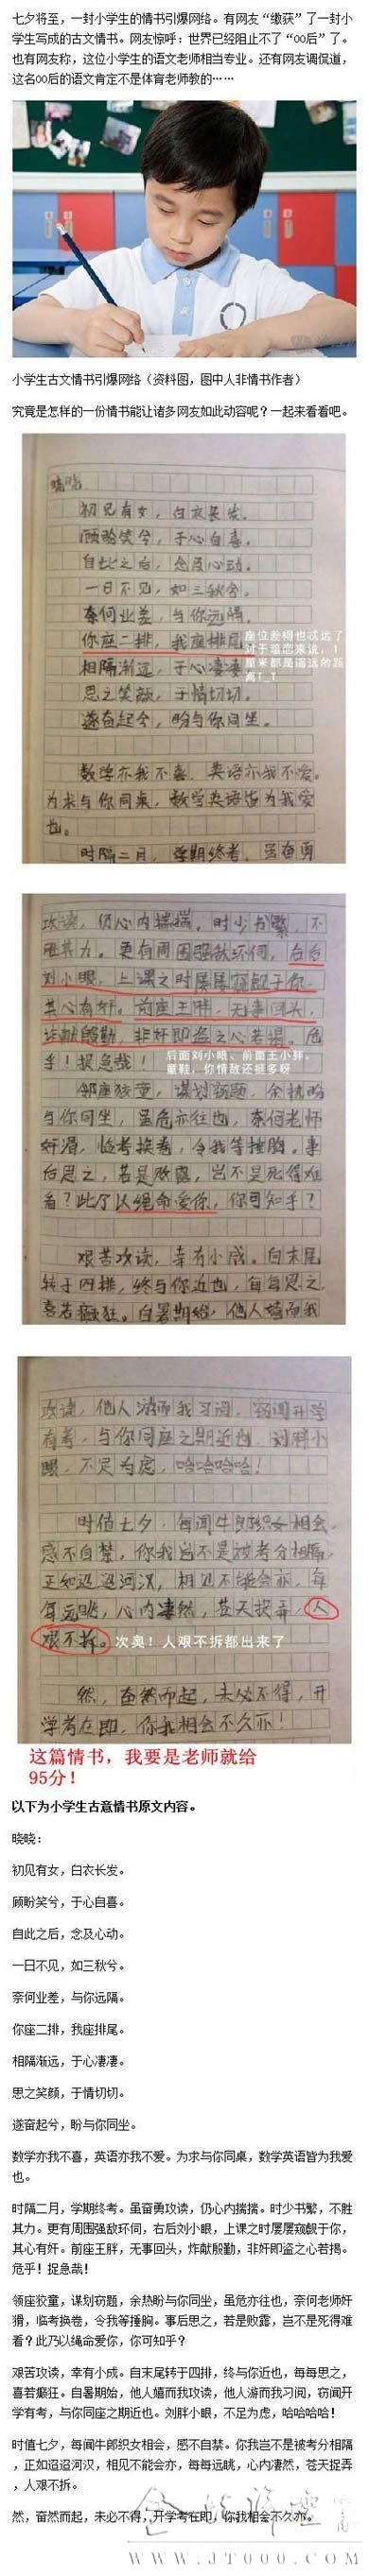 七夕将至，一封小学生的情书引爆网络。有网友“缴获”了一封小
学生写成的古文情书。网友惊呼：世界已经阻止不了“00后”了。
也有网友称，这位小学生的语文老师相当专业。还有网友调侃道，
这名00后的语文肯定不是体育老师教的……
小学生古文情书引爆网络（资料图，图中人非情书作者）
究竟是怎样的一份情书能让诸多网友如此动容呢？一起来看看吧。
晓晓
初见有女，白衣长发。
顾盼笑兮，于心自喜。
自此之后，念及心动。
一日不见，如三秋兮。
奈何业差，与你远隔。
你座二排，我座排尾。
相隔渐远，于心凄凄
思之笑颜，于情切切。
遂奋起兮，盼与你同坐。
座位差得也忒远了
对于暗恋来说，1
厘米都是遥远的距
离T_T
数学亦我不喜，英语亦我不爱。
为求与你同桌，数学英语皆为我爱
也。
时隔二月，学期终考。虽奋勇
攻读，仍心内揣揣。时少书繁，不
胜其力。更有周围强敌环伺，右后
刘小眼，上课之时屡屡窥觑于你，
其心有奸。前座王胖，无事回头，
诈献殷勤，非奸即盗之心若揭。危
乎！捉急哉！
后面刘小眼、前面王小胖，
童鞋，你情敌还挺多呀
邻座狡童，谋划窃题，余热盼
与你同坐，虽危亦往也，奈何老师
奸滑，临考换卷，令我等捶胸。事
后思之，若是败露，岂不是死得难
看？此乃以绳命爱你，你可知乎？
艰苦攻读，幸有小成。自末尾
转于四排，终与你近也，每每思之，
喜若癫狂。自暑期始，他人嬉而我
攻读，他人游而我习阅，窃闻开学
有考，与你同座之期近也。刘胖小
眼，不足为虑，哈哈哈哈！
时值七夕，每闻牛郎织女相会，
感不自禁。你我岂不是被考分相隔，
正如迢迢河汉，相见不能会亦，每
每远眺，心内凄然，苍天捉弄，人
艰不拆。
次奥！人艰不拆都出来了
然，奋然而起，未必不得，开
学考在即，你我相会不久亦！
这篇情书，我要是老师就给
95分！
以下为小学生古意情书原文内容。
晓晓：
初见有女，白衣长发。
顾盼笑兮，于心自喜。
自此之后，念及心动。
一日不见，如三秋兮。
奈何业差，与你远隔。
你座二排，我座排尾。
相隔渐远，于心凄凄。
思之笑颜，于情切切。
遂奋起兮，盼与你同坐。
数学亦我不喜，英语亦我不爱。为求与你同桌，数学英语皆为我爱
也。
时隔二月，学期终考。虽奋勇攻读，仍心内揣揣。时少书繁，不胜
其力。更有周围强敌环伺，右后刘小眼，上课之时屡屡窥觑于你，
其心有奸。前座王胖，无事回头，诈献殷勤，非奸即盗之心若揭。
危乎！捉急哉！
领座狡童，谋划窃题，余热盼与你同坐，虽危亦往也，奈何老师奸
猾，临考换卷，令我等捶胸。事后思之，若是败露，岂不是死得难
看？此乃以绳命爱你，你可知乎？
艰苦攻读，幸有小成。自末尾转于四排，终与你近也，每每思之，
喜若癫狂。自暑期始，他人嬉而我攻读，他人游而我习阅，窃闻开
学有考，与你同座之期近也。刘胖小眼，不足为虑，哈哈哈哈！
时值七夕，每闻牛郎织女相会，感不自禁。你我岂不是被考分相隔
，正如迢迢河汉，相见不能会亦，每每远眺，心内凄然，苍天捉弄
，人艰不拆。
然，奋然而起，未必不得，开学考在即，你我相会不久亦。
WWW.JT000.COM